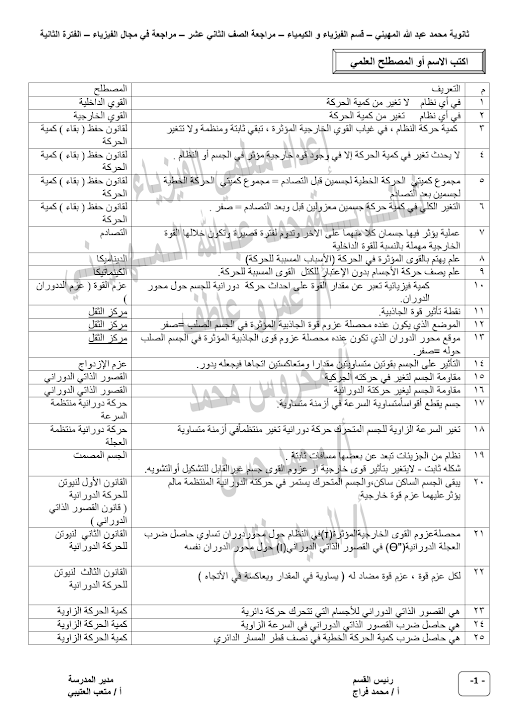 ثانوية محمد عبد الله المهيني – قسم الفيزياء و الكيمياء – مراجعة الصف الثاني عشر – مراجعة في مجال الفيزياء – الفترة الثانية
اكتب الاسم أو المصطلح العلمي
م التعريف المصطلح
١ في أي نظام لا تغير من كمية الحركة القوي الداخلية
٢ في أي نظام تغير من كمية الحركة القوي الخارجية
٣ كمية حركة النظام ، في غياب القوي الخارجية المؤثرة ، تبقي ثابتة ومنظمة ولا تتغير لقانون حفظ ( بقاء ) كمية
الحركة
٤ لا يحدث تغير في كمية الحركة إلا في وجود قوة خارجية مؤثر في الجسم أو النظام . لقانون حفظ ( بقاء ) كمية
الحركة
٥ مجموع كميتي الحركة الخطية لجسمين قبل التصادم = مجموع كميتي الحركة الخطية لقانون حفظ ( بقاء ) كمية
لجسمين بعد التصادم الحركة
٦ التغير الكلي في كمية حركة جسمين معزولين قبل وبعد التصادم = صفر . لقانون حفظ ( بقاء ) كمية
الحركة
٧ عملية يؤثر فيها جسمان كلا منهما على الاخر وتدوم لفترة قصيرة وتكون خلالها القوة التصادم
الخارجية مهملة بالنسبة للقوة الداخلية
٨ علم يهتم بالقوى المؤثرة في الحركة (الأسباب المسببة للحركة) الديناميكا
٩ علم يصف حركة الأجسام بدون الإعتبار للكتل القوى المسببة للحركة. الكينماتيكا
١٠ كمية فيزيائية تعبر عن مقدار القوة علي احداث حركة دورانية للجسم حول محور عزم القوة ( عزم الددوران
الدوران. )
١١ نقطة تأثير قوة الجاذبية. مركز الثقل
١٢ الموضع الذي يكون عنده محصلة عزوم قوة الجاذبية المؤثرة في الجسم الصلب =صفر مركز الثقل
١٣ موقع محور الدوران الذي تكون عنده محصلة عزوم قوى الجاذبية المؤثرة في الجسم الصلب مركز الثقل
حوله =صفر.
١٤ التأثير على الجسم بقوتين متساويتين مقدارا ومتعاكستين اتجاها فيجعله يدور. عزم الإزدواج
١٥ مقاومة الجسم لتغير في حركته الحركية القصور الذاتي الدوراني
١٦ مقاومة الجسم ليغير حركته الدورانية القصور الذاتي الدوراني
١٧ جسم يقطع أقواسأمتساوية السرعة في أزمنة متساوية. حركة دورانية منتظمة
السرعة
١٨ تغير السرعة الزاوية للجسم المتحرك حركة دورانية تغير منتظمأفي أزمنة متساوية حركة دورانية منتظمة
العجلة
١٩ نظام من الجزيئات تبعد عن بعضها مسافات ثابتة . الجسم المصمت
شكله ثابت - لايتغير بتأثير قوى خارجية او عزوم القوى جسم غيرالقابل للتشكيل أوالتشويه.
٢٠ يبقي الجسم الساكن ساكن،والجسم المتحرك يستمر في حركته الدورانية المنتظمة مالم القانون الأول لنيوتن
يؤثر عليهما عزم قوة خارجية للحركة الدورانية
( قانون القصور الذاتي
الدوراني )
٢١ محصلةعزوم القوى الخارجيةالمؤثرة(τ)في النظام حول محوردوران تساوي حاصل ضرب القانون الثاني لنيوتن
العجلة الدورانية(Θ") في القصور الذاتي الدوراني(I) حول محور الدوران نفسه للحركة الدورانية
٢٢ لكل عزم قوة ، عزم قوة مضاد له ( يساوية في المقدار ويعاكسة في الأتجاه ) القانون الثالث لنيوتن
للحركة الدورانية
٢٣ هي القصور الذاتي الدوراني للأجسام التي تتحرك حركة دائرية كمية الحركة الزاوية
٢٤ هي حاصل ضرب القصور الذاتي الدوراني في السرعة الزاوية كمية الحركة الزاوية
٢٥ هي حاصل ضرب كمية الحركة الخطية في نصف قطر المسار الدائري كمية الحركة الزاوية
-1- رئيس القسم مدير المدرسة
أ / محمد فراج أ / متعب العتيبي